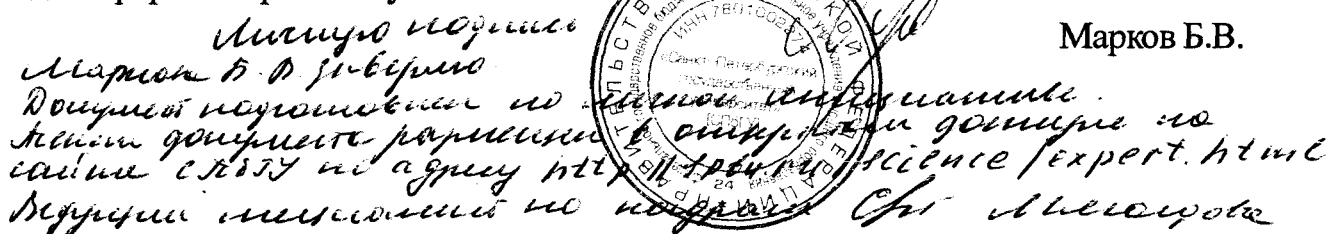 Личную подпись
Марков Б.В.
Маркова Б.В. заверяю
Документ подготовлен по личной инициативе.
Текст документа размещен в открытом доступе на
сайте СПбГУ по адресу http://spbu.ru/science/expert.html
Ведущий специалист по кадрам